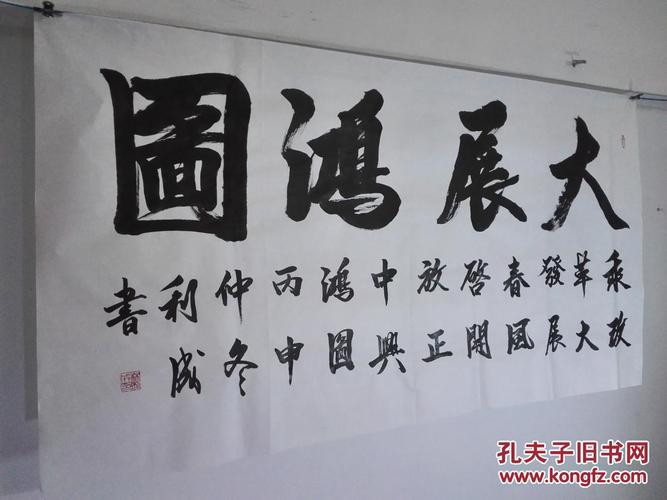 大展鴻圖
乘改
革大
發展
春風
啓開
放正
中興
鴻圖
丙申
仲冬
利成
書
孔夫子旧书网
www.kongfz.com